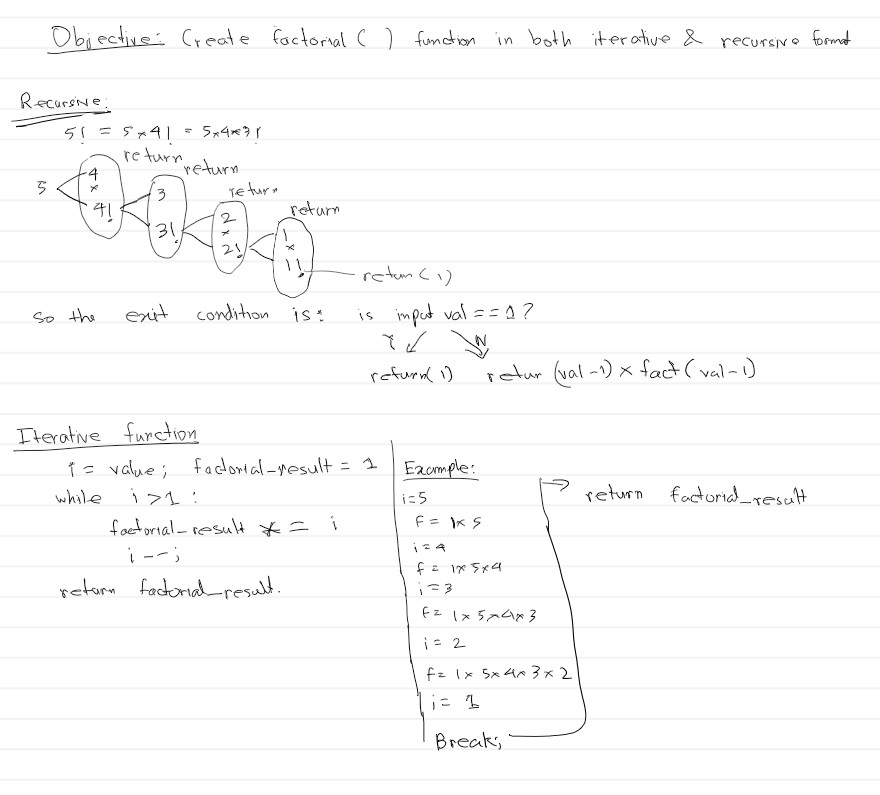 Objective: Create factorial( ) function in both iterative & recursive format
Recursive:
5! = 5×4! = 5×4×3!
return
return
return
return
5
4
×
4!
3
3!
2
×
2!
1
×
1!
return(1)
so the exit condition is: is input val == 1?
Y N
return(1) retur (val-1) × fact(val-1)
Iterative function
i = value; factorial_result = 1
while i >1 :
factorial_result *= i
i--;
return factorial_result.
Example:
i=5
f = 1×5
i=4
f = 1×5×4
i=3
f= 1×5×4×3
i= 2
f= 1×5×4×3×2
i= 1
Break;
return factorial_result